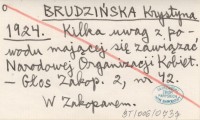 BRUDZIŃSKA Krystyna
1924. Kilka uwag z po-
wodu mającej się zawiązać
Narodowej Organizacji Kobiet.
- Głos Zakop. 2, nr 42.
W Zakopanem.